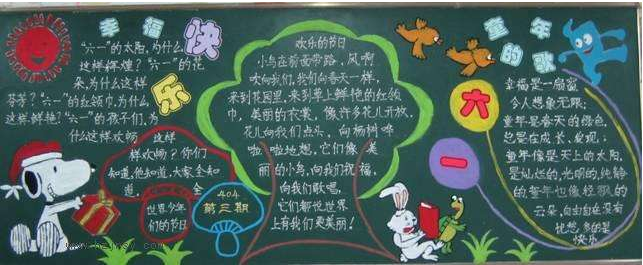 幸福快乐
"六一"的太阳,为什么
这样辉煌?"六一"的花
朵,为什么这样
芬芳?"六一"的红领巾,为什么
这样鲜艳?"六一"的孩子们,为
什么这样欢畅 这样
样欢畅?你们
知道,他知道,大家全知
道,
全
世界少年
们的节日
404
第三期
欢乐的节日
小鸟在前面带路,风啊
吹向我们,我们向春天一样,
来到花园里,来到草上鲜艳的红领
巾,美丽的衣裳,像许多花儿开放,
花儿向我们点头,向杨树哗
啦啦地想,它们像美
丽的小鸟,向我们祝福,
向我们歌唱,
它们都说世界
上有我们更美丽!
童年的歌
六一
幸福是一扇窗
令人想象无限;
童年是春天的绿色,
总是在成长、发现;
童年像是天上的太阳,
是灿烂的,光明的,纯静
的童年也像轻飘的
云朵,自由自在没有
忧愁,多的是
快乐